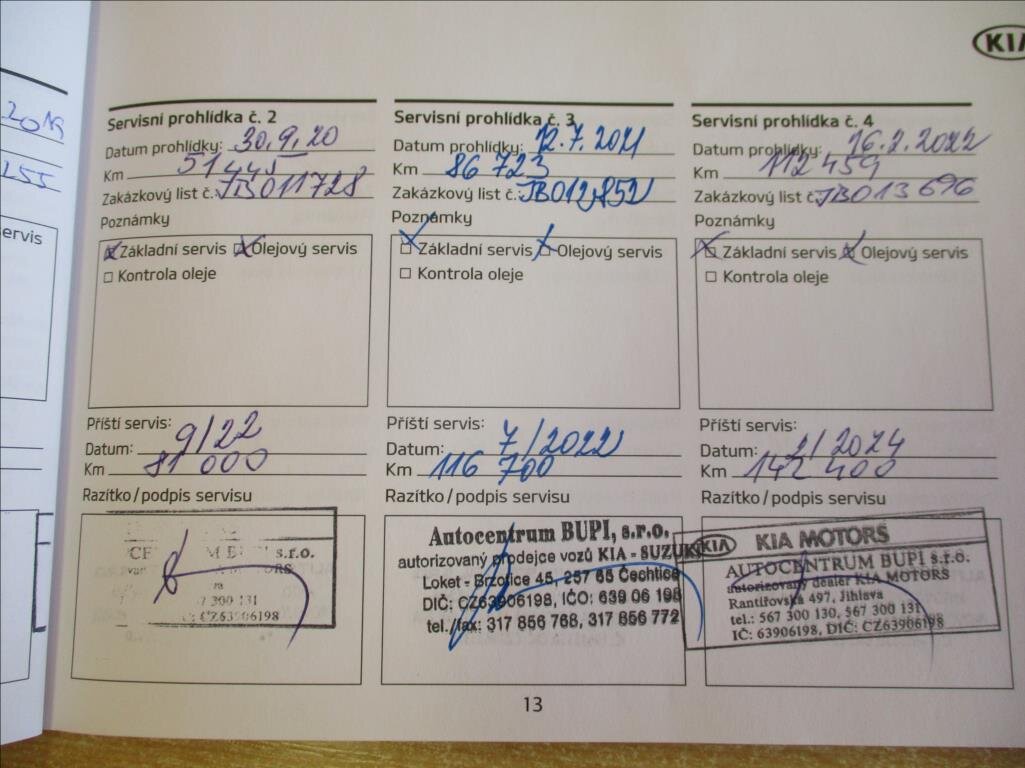 KIA
2019
255
ervis
Servisní prohlídka č. 2
Datum prohlídky: 30.9.20
Km 51445
Zakázkový list č.: JB011728
Poznámky
Základní servis Olejový servis
Kontrola oleje
Příští servis:
Datum: 9/22
Km 81 000
Razítko/podpis servisu
s.r.o.
7 300 131
: CZ63906198
Servisní prohlídka č. 3
Datum prohlídky: 12.7.2021
Km 86 723
Zakázkový list č.: JB012852
Poznámky
Základní servis Olejový servis
Kontrola oleje
Příští servis:
Datum: 7/2022
Km 116 700
Razítko/podpis servisu
Autocentrum BUPI, s.r.o.
autorizovaný prodejce vozů KIA - SUZUKI
Loket - Brzotice 45, 257 65 Čechtice
DIČ: CZ63906198, IČO: 639 06 198
tel./fax: 317 856 768, 317 856 772
Servisní prohlídka č. 4
Datum prohlídky: 16.2.2022
Km 112 459
Zakázkový list č.: JB013696
Poznámky
Základní servis Olejový servis
Kontrola oleje
Příští servis:
Datum: 2/2024
Km 142 400
Razítko/podpis servisu
KIA KIA MOTORS
AUTOCENTRUM BUPI s.r.o.
autorizovaný dealer KIA MOTORS
Rantířovská 497, Jihlava
tel.: 567 300 130, 567 300 131
IČ: 63906198, DIČ: CZ63906198
13